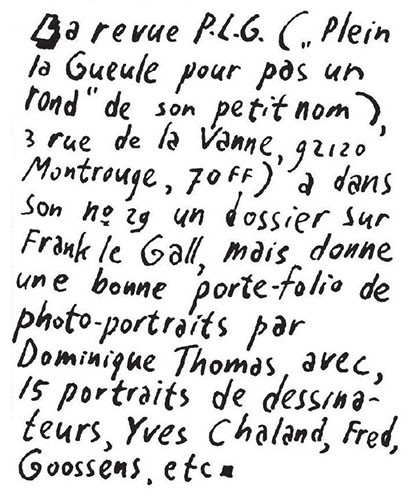 La revue P.L.G. („Plein
la Gueule pour pas un
rond" de son petit nom),
3 rue de la Vanne, 92120
Montrouge, 70FF) a dans
son nº 29 un dossier sur
Frank le Gall, mais donne
une bonne porte-folio de
photo-portraits par
Dominique Thomas avec,
15 portraits de dessina-
teurs, Yves Chaland, Fred,
Goossens, etc.